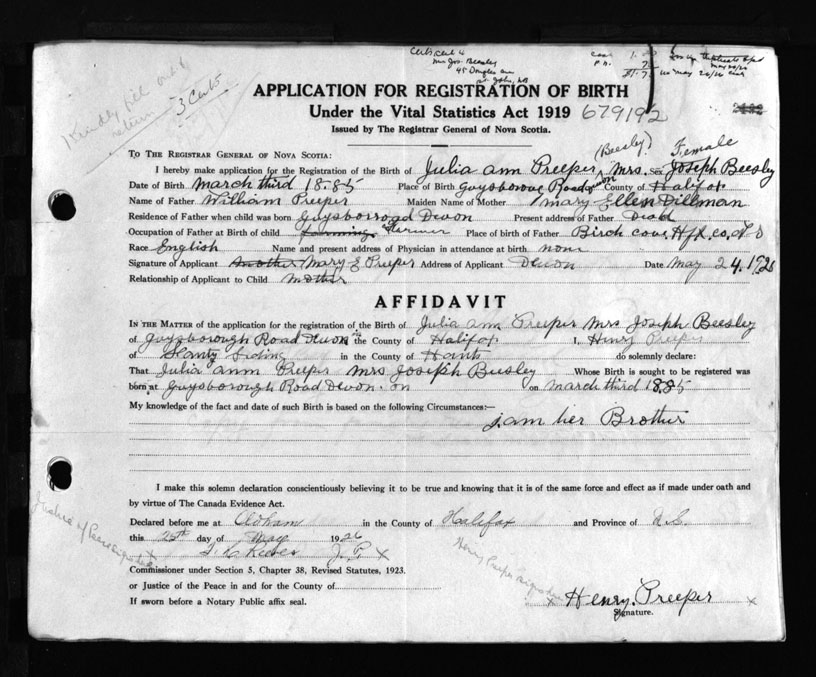 Mrs Jos. Beesley
45 Douglas ave
St. John, NB
Kindly fill out &
return
3 Certs
APPLICATION FOR REGISTRATION OF BIRTH
Under the Vital Statistics Act 1919 679192
Issued by The Registrar General of Nova Scotia.
(Beesley) Female
To The Registrar General of Nova Scotia:
I hereby make application for the Registration of the Birth of Julia ann Preeper, Mrs. Sex Joseph Beesley
Date of Birth march third 18.85 Place of Birth Guysborove Road Devon County of Halifax
Name of Father William Preeper Maiden Name of Mother mary Ellen Dillman
Residence of Father when child was born Guysborroad Devon Present address of Father Dead
Occupation of Father at Birth of child farming Farmer Place of birth of Father Birch cove. Hfx. co, N S
Race English Name and present address of Physician in attendance at birth none
Signature of Applicant Another Mary E Preeper Address of Applicant Devon Date May 24. 1926
Relationship of Applicant to Child mother
AFFIDAVIT
In the Matter of the application for the registration of the Birth of Julia ann Preeper Mrs Joseph Beesley
of Guysborough Road Devon in the County of Halifax I, Henry Preeper
of Hantz Siding in the County of Hants do solemnly declare:
That Julia ann Preeper mrs Joseph Beesley Whose Birth is sought to be registered was
born at Guysborough Road Devon. on on march third 18.85
My knowledge of the fact and date of such Birth is based on the following Circumstances:—
I. am her Brother
I make this solemn declaration conscientiously believing it to be true and knowing that it is of the same force and effect as if made under oath and
by virtue of The Canada Evidence Act.
Declared before me at Oldham in the County of Halifax and Province of N.S.
this 25th day of May 1926
J. P. X
Commissioner under Section 5, Chapter 38, Revised Statutes, 1923.
or Justice of the Peace in and for the County of
If sworn before a Notary Public affix seal.
Justice of Peace sign here
Henry Preeper sign here
x Henry. Preeper x
Signature.